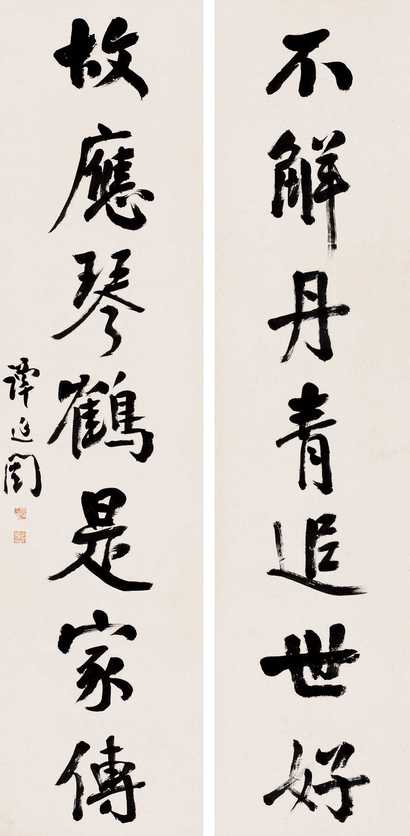 不解丹青追世好
故應琴鶴是家傳
譚延闓